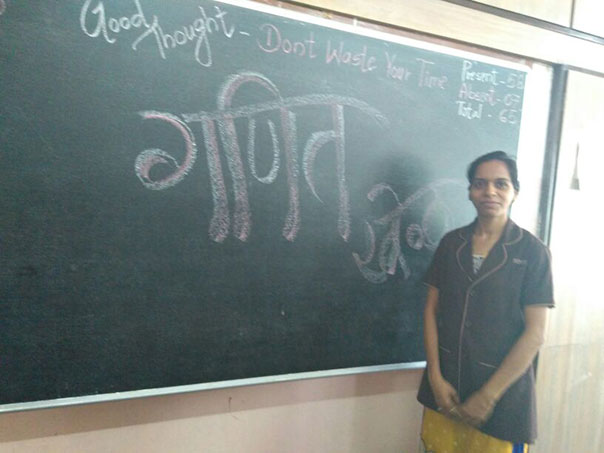 Good
Thought - Dont Waste Your Time
Present - 58
Absent - 07
Total - 65
गणित